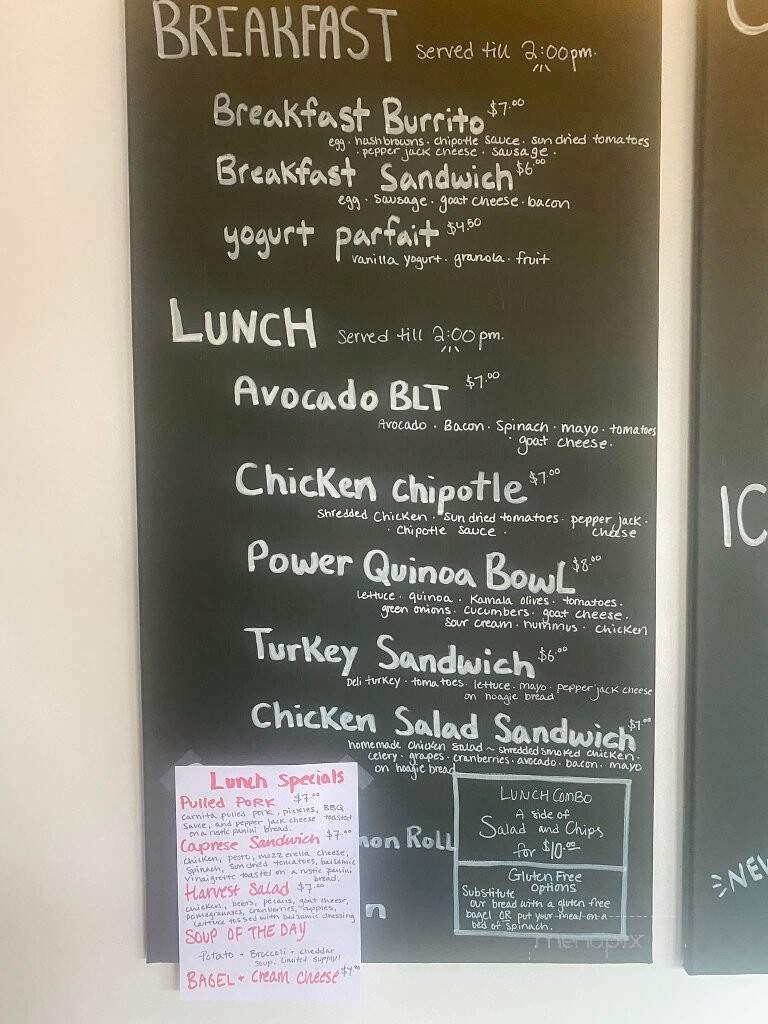 BREAKFAST served till 2:00pm.
Breakfast Burrito $7.00
egg · hashbrowns · chipotle sauce · sun dried tomatoes
· pepper jack cheese · sausage ·
Breakfast Sandwich $6.00
egg · sausage · goat cheese · bacon
yogurt parfait $4.50
vanilla yogurt · granola · fruit
LUNCH served till 2:00pm.
Avocado BLT $7.00
Avocado · Bacon · Spinach · mayo · tomatoes
· goat cheese ·
Chicken chipotle $7.00
Shredded Chicken · sun dried tomatoes · pepper jack ·
· chipotle sauce · cheese
Power Quinoa Bowl $8.00
lettuce · quinoa · Kamala olives · tomatoes ·
green onions · cucumbers · goat cheese ·
sour cream · hummus · chicken
Turkey Sandwich $6.00
Deli turkey · tomatoes · lettuce · mayo · pepper jack cheese
on hoagie bread
Chicken Salad Sandwich $7.00
homemade chicken salad ~ shredded smoked chicken ·
celery · grapes · cranberries · avocado · bacon · mayo
on hoagie bread
Lunch Specials
Pulled Pork $7.00
carnita pulled pork, pickles, BBQ
sauce, and pepper jack cheese toasted
on a rustic panini bread.
Caprese Sandwich $7.00
chicken, pesto, mozzerella cheese,
spinach, sun dried tomatoes, balsamic
vinaigrette toasted on a rustic panini
bread.
Harvest Salad $7.00
chicken, beets, pecans, goat cheese,
pomegranates, cranberries, apples,
lettuce tossed with balsamic dressing
SOUP OF THE DAY
Potato + Broccoli + cheddar
soup. Limited supply!
BAGEL + cream cheese
non Roll
n
LUNCH COMBO
A side of
Salad and Chips
for $10.00
Gluten Free
options
Substitute
our bread with a gluten free
bagel OR put your meal on a
bed of spinach.
menupix
C
IC
NEW